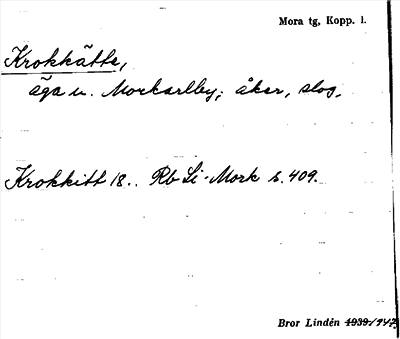 Mora tg, Kopp. l.
Krokkätte,
äga u. Morkarlby; åker, slog.
Krokkitt 18.. Rb Li-Mork s. 409.
Bror Lindén 1939/1947